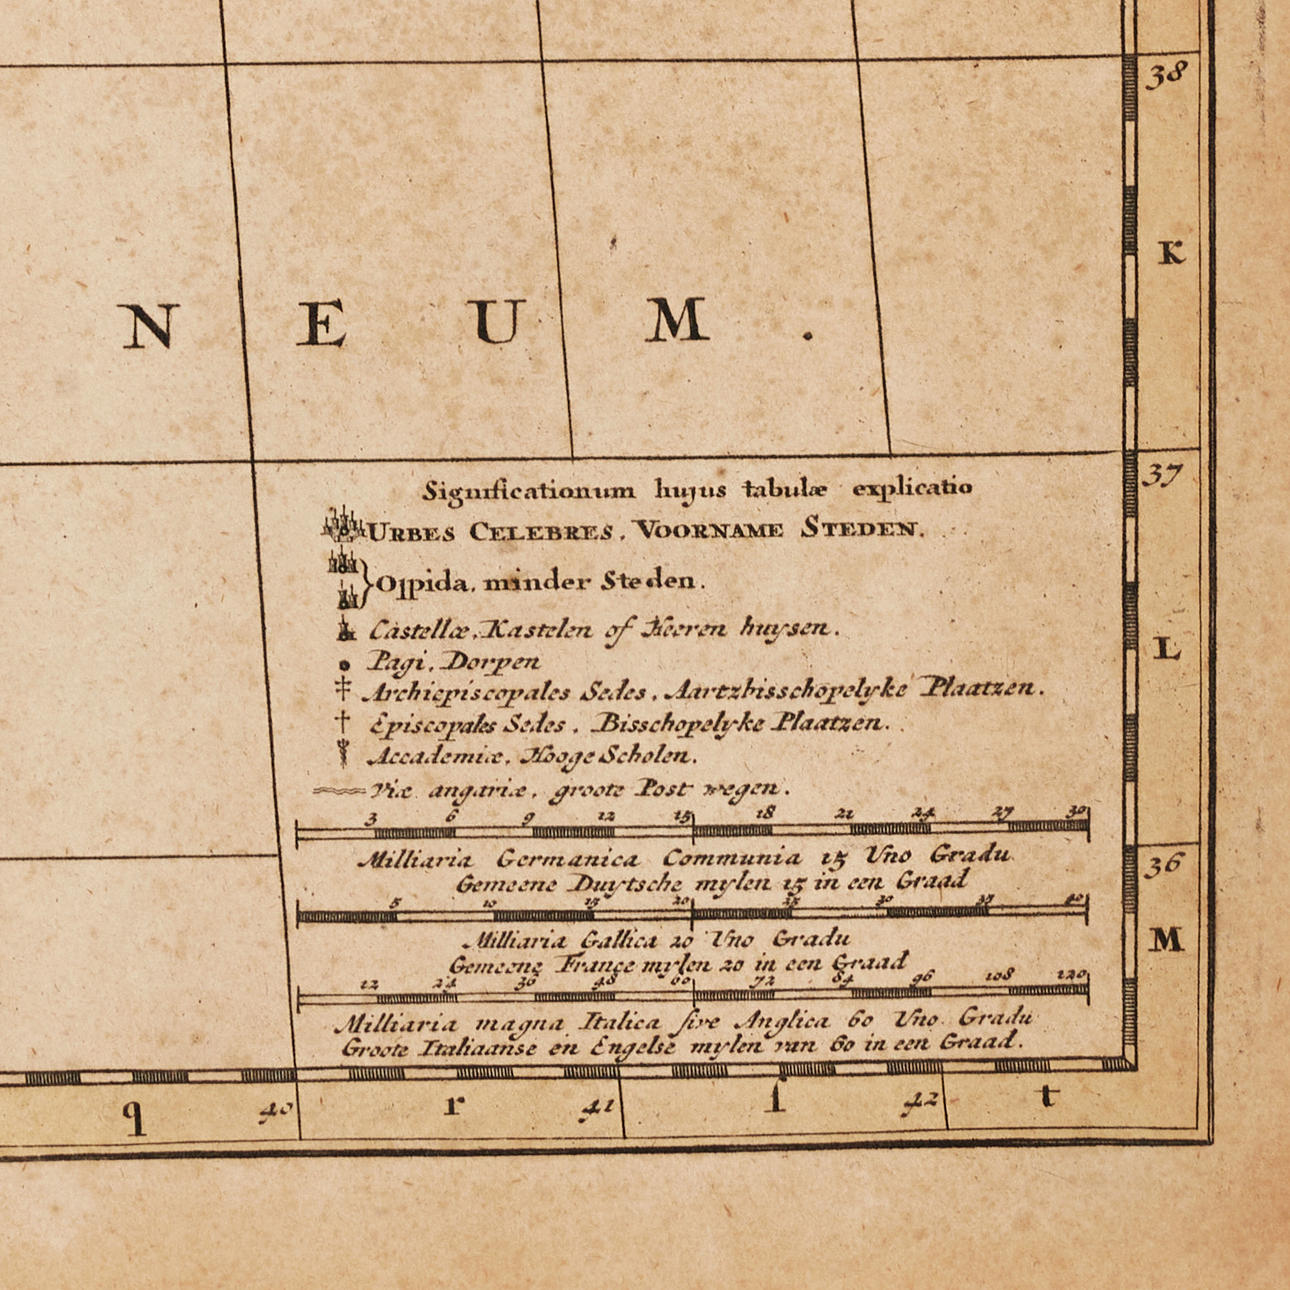 38
K
N E U M .
37
Significationum hujus tabulæ explicatio
URBES CELEBRES, VOORNAME STEDEN.
Oppida, minder Steden.
Castellæ, Kastelen of Heeren huysen.
L
Pagi, Dorpen
Archiepiscopales Sedes, Aartzbisschopelyke Plaatzen.
Episcopales Sedes, Bisschopelyke Plaatzen.
Accademiæ, Hooge Scholen.
Viæ angariæ, groote Post wegen.
3 6 9 12 15 18 21 24 27 30
Milliaria Germanica Communia 15 Uno Gradu
36
Gemeene Duytsche mylen 15 in een Graad
5 10 15 20 25 30 35 40
M
Milliaria Gallica 20 Uno Gradu
Gemeene France mylen 20 in een Graad
12 24 36 48 60 72 84 96 108 120
Milliaria magna Italica sive Anglica 60 Uno Gradu
Groote Italiaanse en Engelse mylen van 60 in een Graad.
q 40 r 41 ſ 42 t